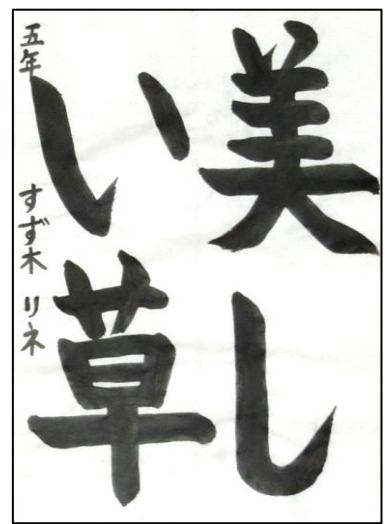 美し
い草
五年 すず木 リネ